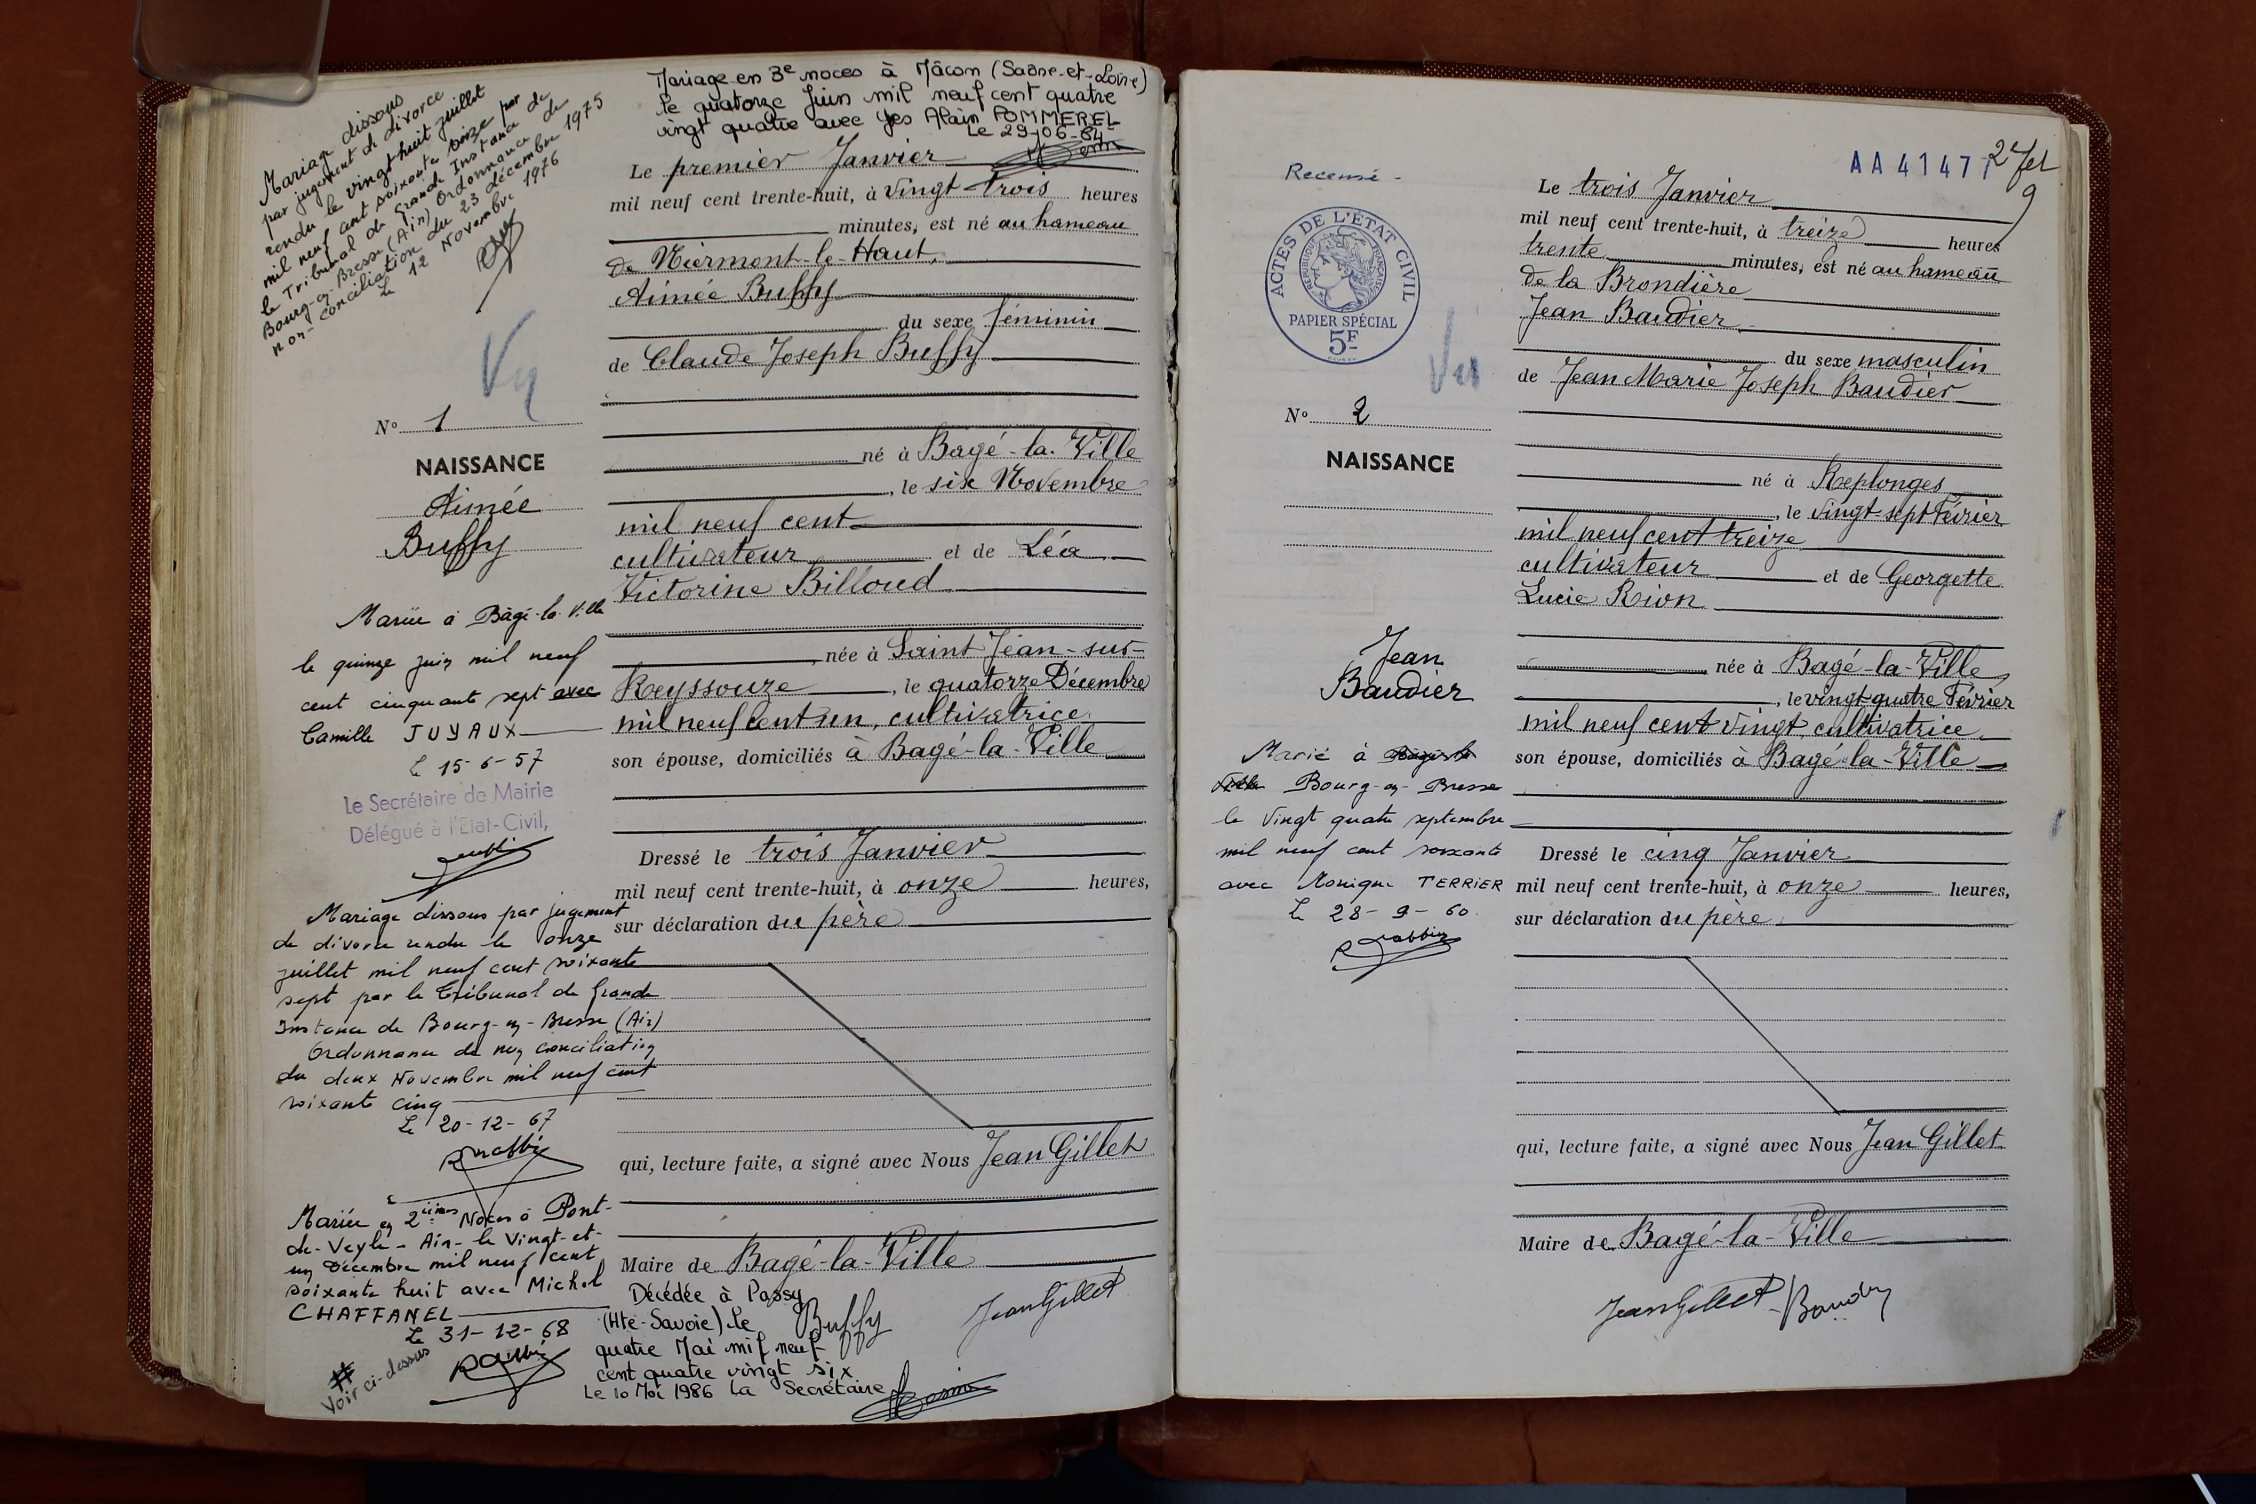 Mariage en 3e noces à Mâcon (Saône-et-Loire)
le quatorze Juin mil neuf cent quatre
vingt quatre avec Yes Alain POMMEREL
Le 29-06-84
Mariage dissous
par jugement de divorce
rendu le vingt huit juillet
mil neuf cent soixante seize par
le Tribunal de Grande Instance de
Bourg-en-Bresse (Ain) Ordonnance de
non-conciliation du 23 décembre 1975
Le 12 Novembre 1976
Vu
N° 1
NAISSANCE
Aimée
Buffy
Mariée à Bâgé-la-Ville
le quinze juin mil neuf
cent cinquante sept avec
Camille JUYAUX
Le 15-6-57
Le Secrétaire de Mairie
Délégué à l'Etat-Civil,
Mariage dissous par jugement
de divorce rendu le onze
juillet mil neuf cent soixante
sept par le Tribunal de Grande
Instance de Bourg-en-Bresse (Ain)
Ordonnance de non conciliation
du deux Novembre mil neuf cent
soixante cinq
Le 20-12-67
Mariée en 2ièmes Noces à Pont-
de-Veyle - Ain - le Vingt-et-
un Décembre mil neuf cent
soixante huit avec Michel
CHAFFANEL
Le 31-12-68
#
Voir ci-dessus
Le premier Janvier
mil neuf cent trente-huit, à vingt trois heures
minutes, est né au hameau
de Niermont-le-Haut,
Aimée Buffy
du sexe féminin
de Claude Joseph Buffy
né à Bâgé-la-Ville
, le six Novembre
mil neuf cent
cultivateur et de Léa
Victorine Billoud
, née à Saint Jean-sur-
Reyssouze, le quatorze Décembre
mil neuf cent un, cultivatrice,
son épouse, domiciliés à Bagé-la-Ville
Dressé le trois Janvier
mil neuf cent trente-huit, à onze heures,
sur déclaration du père
qui, lecture faite, a signé avec Nous Jean Gillet
Maire de Bagé-la-Ville
Décédée à Passy
(Hte-Savoie) le
quatre Mai mil neuf
cent quatre vingt six
Le 10 Mai 1986 La Secrétaire
Buffy
Jean Gillet
Recensé -
AA 41477
ACTES DE L'ÉTAT CIVIL
RÉPUBLIQUE FRANÇAISE
PAPIER SPÉCIAL
5F
Vu
N° 2
NAISSANCE
Jean
Baudier
Marié à
Bourg-en-Bresse
le Vingt quatre septembre
mil neuf cent soixante
avec Monique TERRIER
Le 28-9-60
Le trois Janvier
mil neuf cent trente-huit, à treize heures
trente minutes, est né au hameau
de la Brondière
Jean Baudier
du sexe masculin
de Jean Marie Joseph Baudier
né à Replonges
, le vingt-sept Février
mil neuf cent treize
cultivateur et de Georgette
Lucie Rion
née à Bagé-la-Ville
, le vingt-quatre Février
mil neuf cent vingt, cultivatrice
son épouse, domiciliés à Bagé-la-Ville
Dressé le cinq Janvier
mil neuf cent trente-huit, à onze heures,
sur déclaration du père
qui, lecture faite, a signé avec Nous Jean Gillet
Maire de Bagé-la-Ville
Jean Gillet